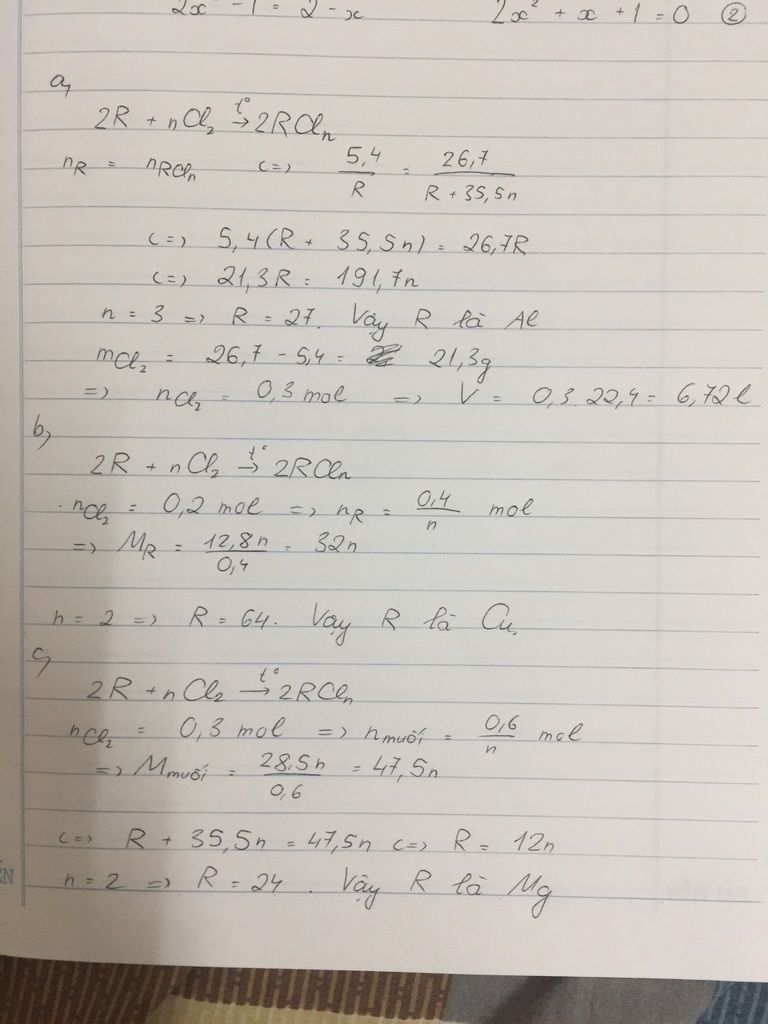 2x² - 1 = 2 - x 2x² + x + 1 = 0 ②
a,
2R + nCl₂ →(t°) 2RClₙ
n_R = n_RClₙ <=> 5,4/R = 26,7/(R + 35,5n)
<=> 5,4(R + 35,5n) = 26,7R
<=> 21,3R = 191,7n
n = 3 => R = 27. Vậy R là Al
m_Cl₂ = 26,7 - 5,4 = 21,3g
=> n_Cl₂ = 0,3 mol => V = 0,3.22,4 = 6,72l
b,
2R + nCl₂ →(t°) 2RClₙ
n_Cl₂ = 0,2 mol => n_R = 0,4/n mol
=> M_R = 12,8n/0,4 = 32n
n = 2 => R = 64. Vậy R là Cu.
c,
2R + nCl₂ →(t°) 2RClₙ
n_Cl₂ = 0,3 mol => n_muối = 0,6/n mol
=> M_muối = 28,5n/0,6 = 47,5n
<=> R + 35,5n = 47,5n <=> R = 12n
n = 2 => R = 24. Vậy R là Mg